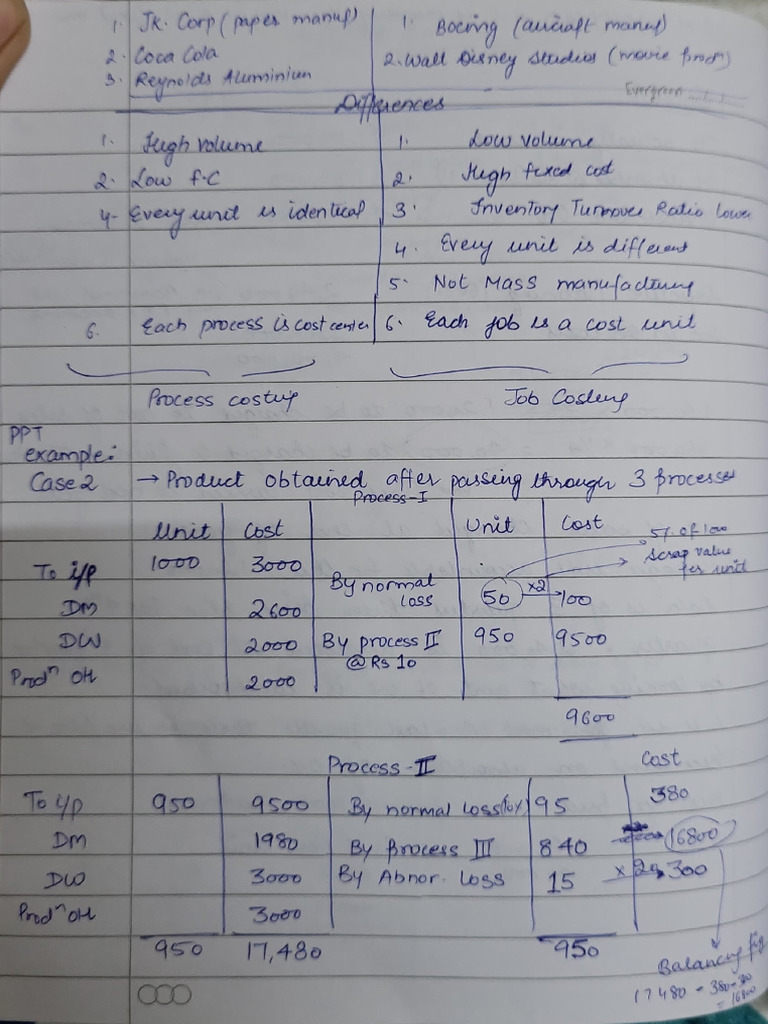 1. JK. Corp (paper manuf) 1. Boeing (aircraft manuf)
2. Coca Cola 2. Wall Disney Studios (movie prodn)
3. Reynolds Aluminium
Evergreen
Differences
1. High volume 1. Low volume
2. Low f.C 2. High fixed cost
4- Every unit is identical 3. Inventory Turnover Ratio lower
4. Every unit is different
5. Not Mass manufacturing
6. Each process is cost center 6. Each job is a cost unit
Process costing Job Costing
PPT
example:
Case 2 → Product obtained after passing through 3 processes
Process-I
Unit Cost Unit Cost
5% of 1000
To i/p 1000 3000 → Scrap value per unit
DM 2600 By normal loss 50 ×2 → 100
DW 2000 By process II @ Rs 10 950 9500
Prodn OH 2000
9600
Process-II
Cost
To i/p 950 9500 By normal loss 95 380
DM 1980 By process III 840 16800
DW 3000 By Abnor. loss 15 300
Prodn OH 3000
950 17,480 950
Balancing fig
17480 - 380-300
= 16800